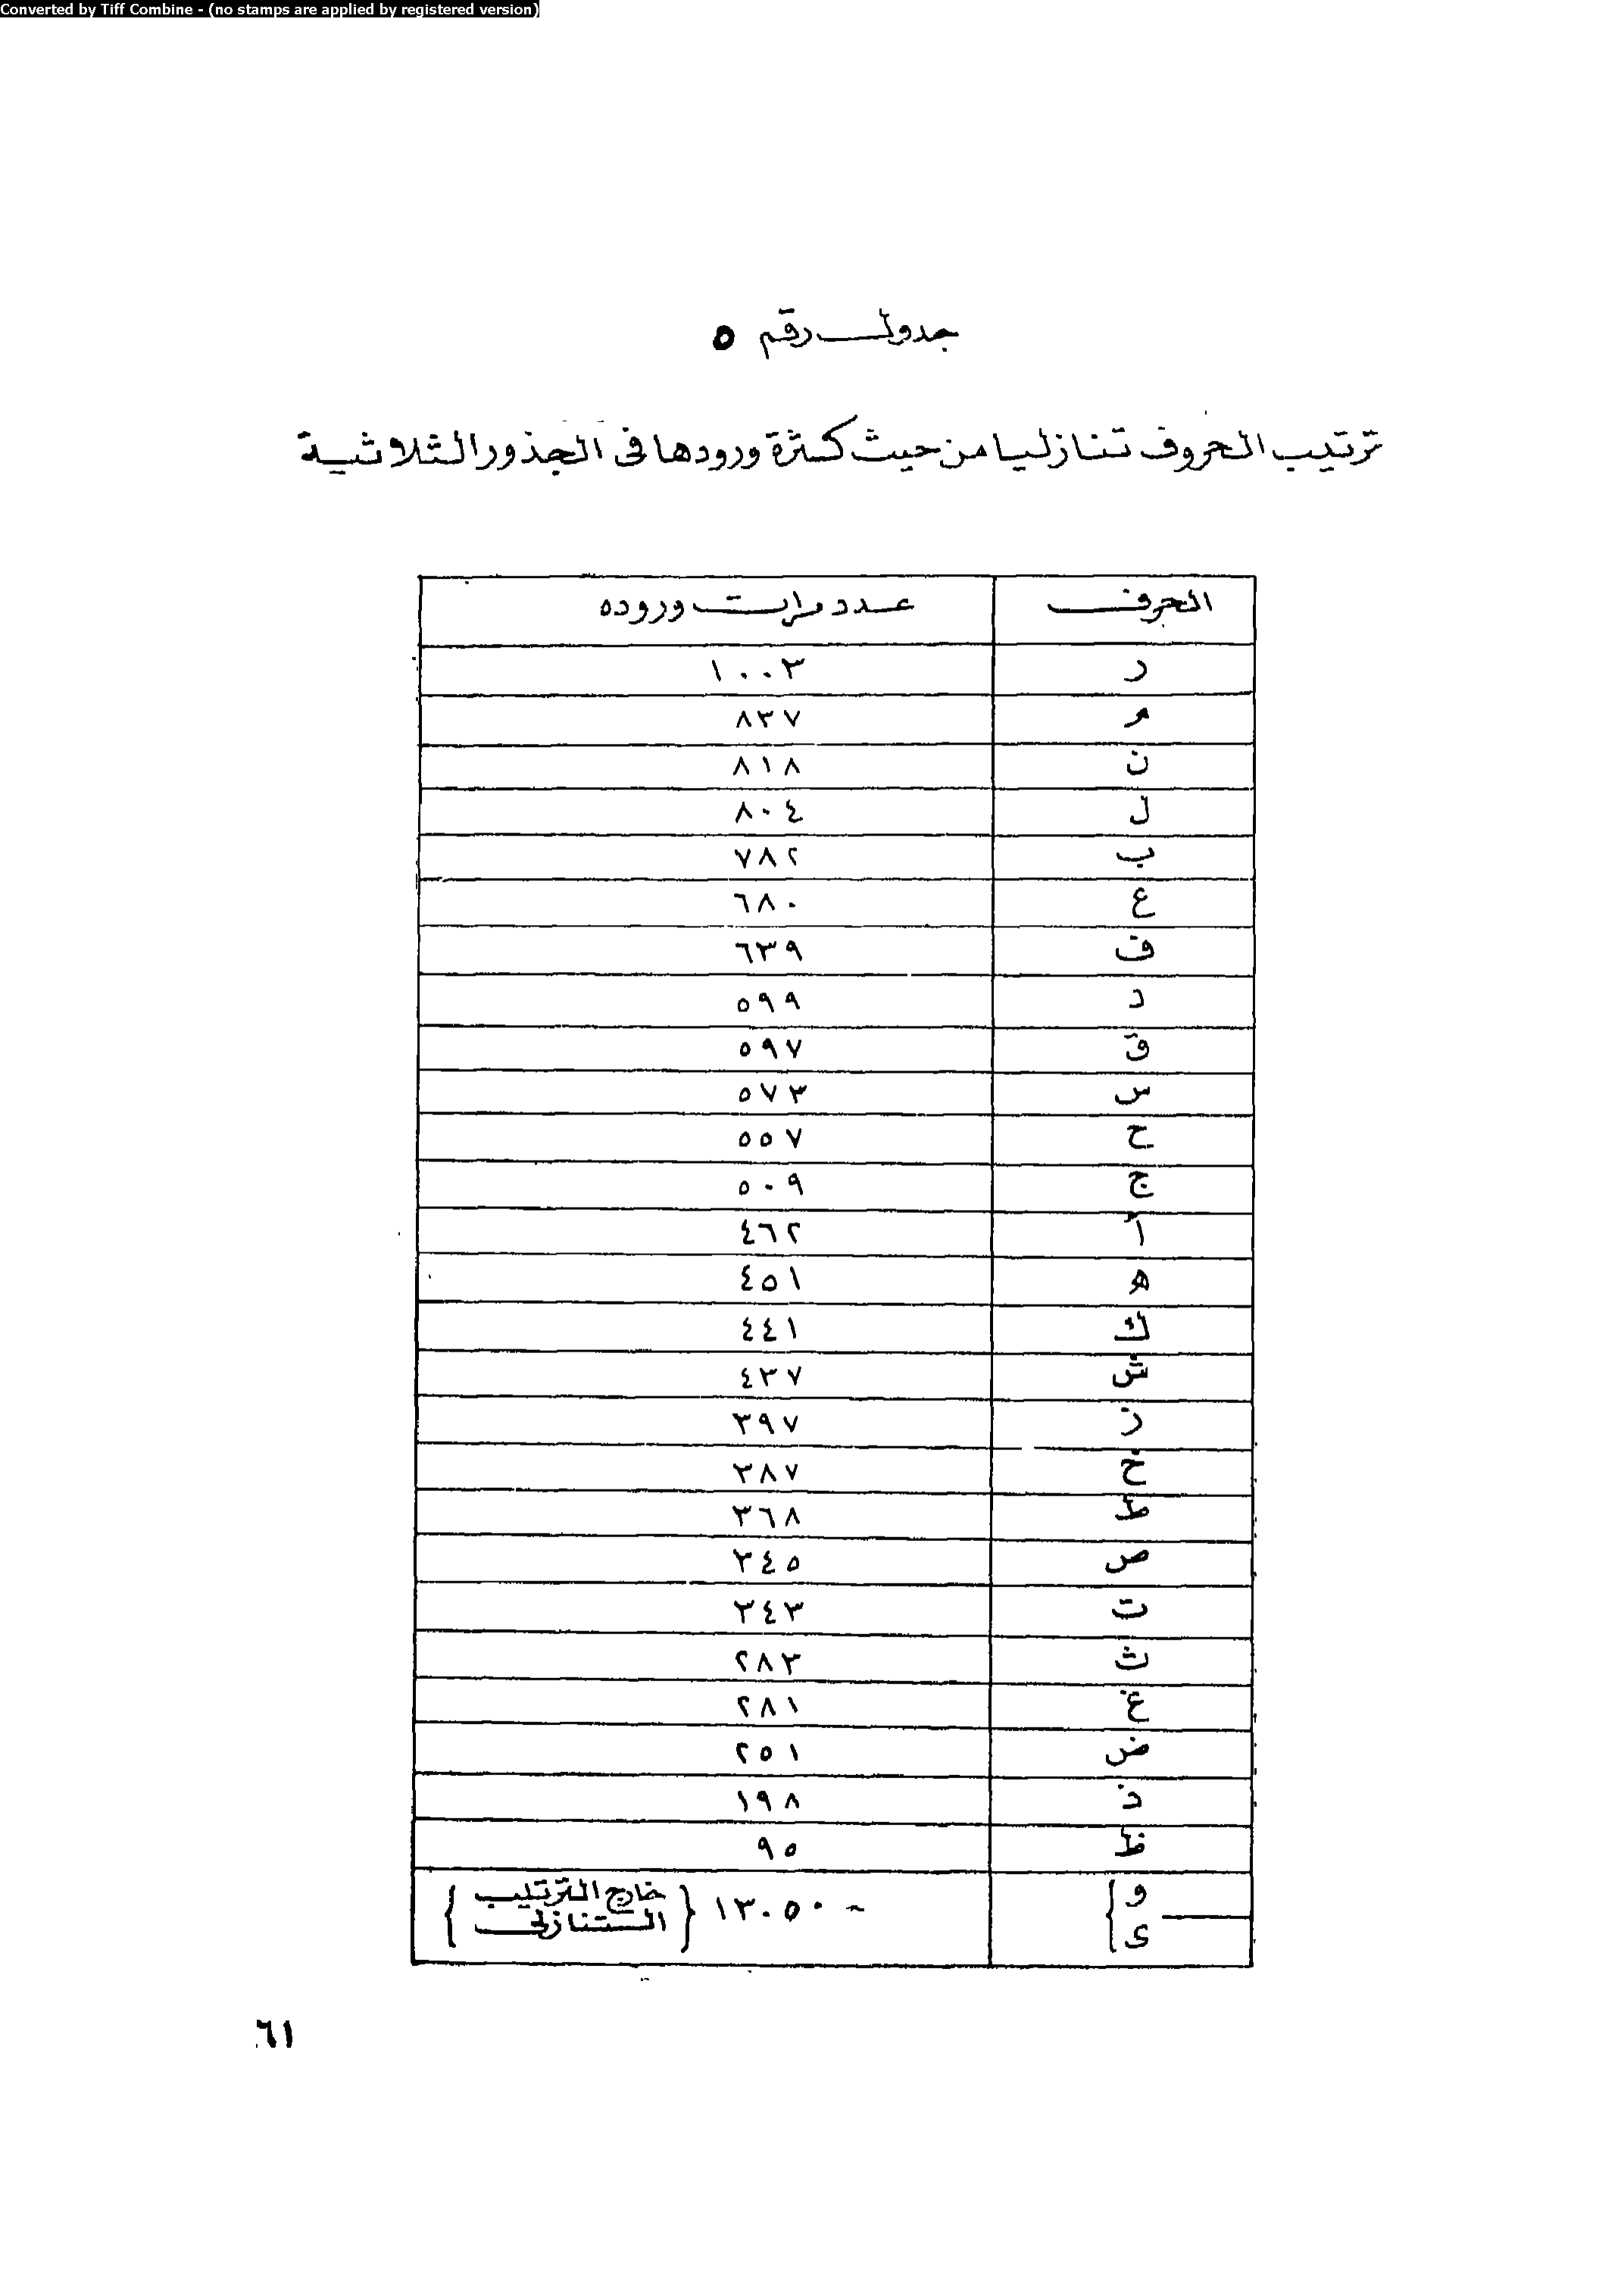 Converted by Tiff Combine - (no stamps are applied by registered version)
جدول رقم ٥
ترتيب الحروف تنازليا من حيث كثرة ورودها فى الجذور الثلاثية
الحرف عدد مرات وروده
ر ١٠٠٣
م ٨٣٧
ن ٨١٨
ل ٨٠٤
ب ٧٨٢
ع ٦٨٠
ف ٦٣٩
د ٥٩٩
ق ٥٩٧
س ٥٧٣
ح ٥٥٧
ج ٥٠٩
أ ٤٦٢
ه ٤٥١
ك ٤٤١
ش ٤٣٧
ز ٣٩٧
خ ٣٨٧
ط ٣٦٨
ص ٣٤٥
ت ٣٤٣
ث ٢٨٣
غ ٢٨١
ض ٢٥١
ذ ١٩٨
ظ ٩٥
و
ى
١٣٠٥٠
{خارج الترتيب
التنازلى}
٦١